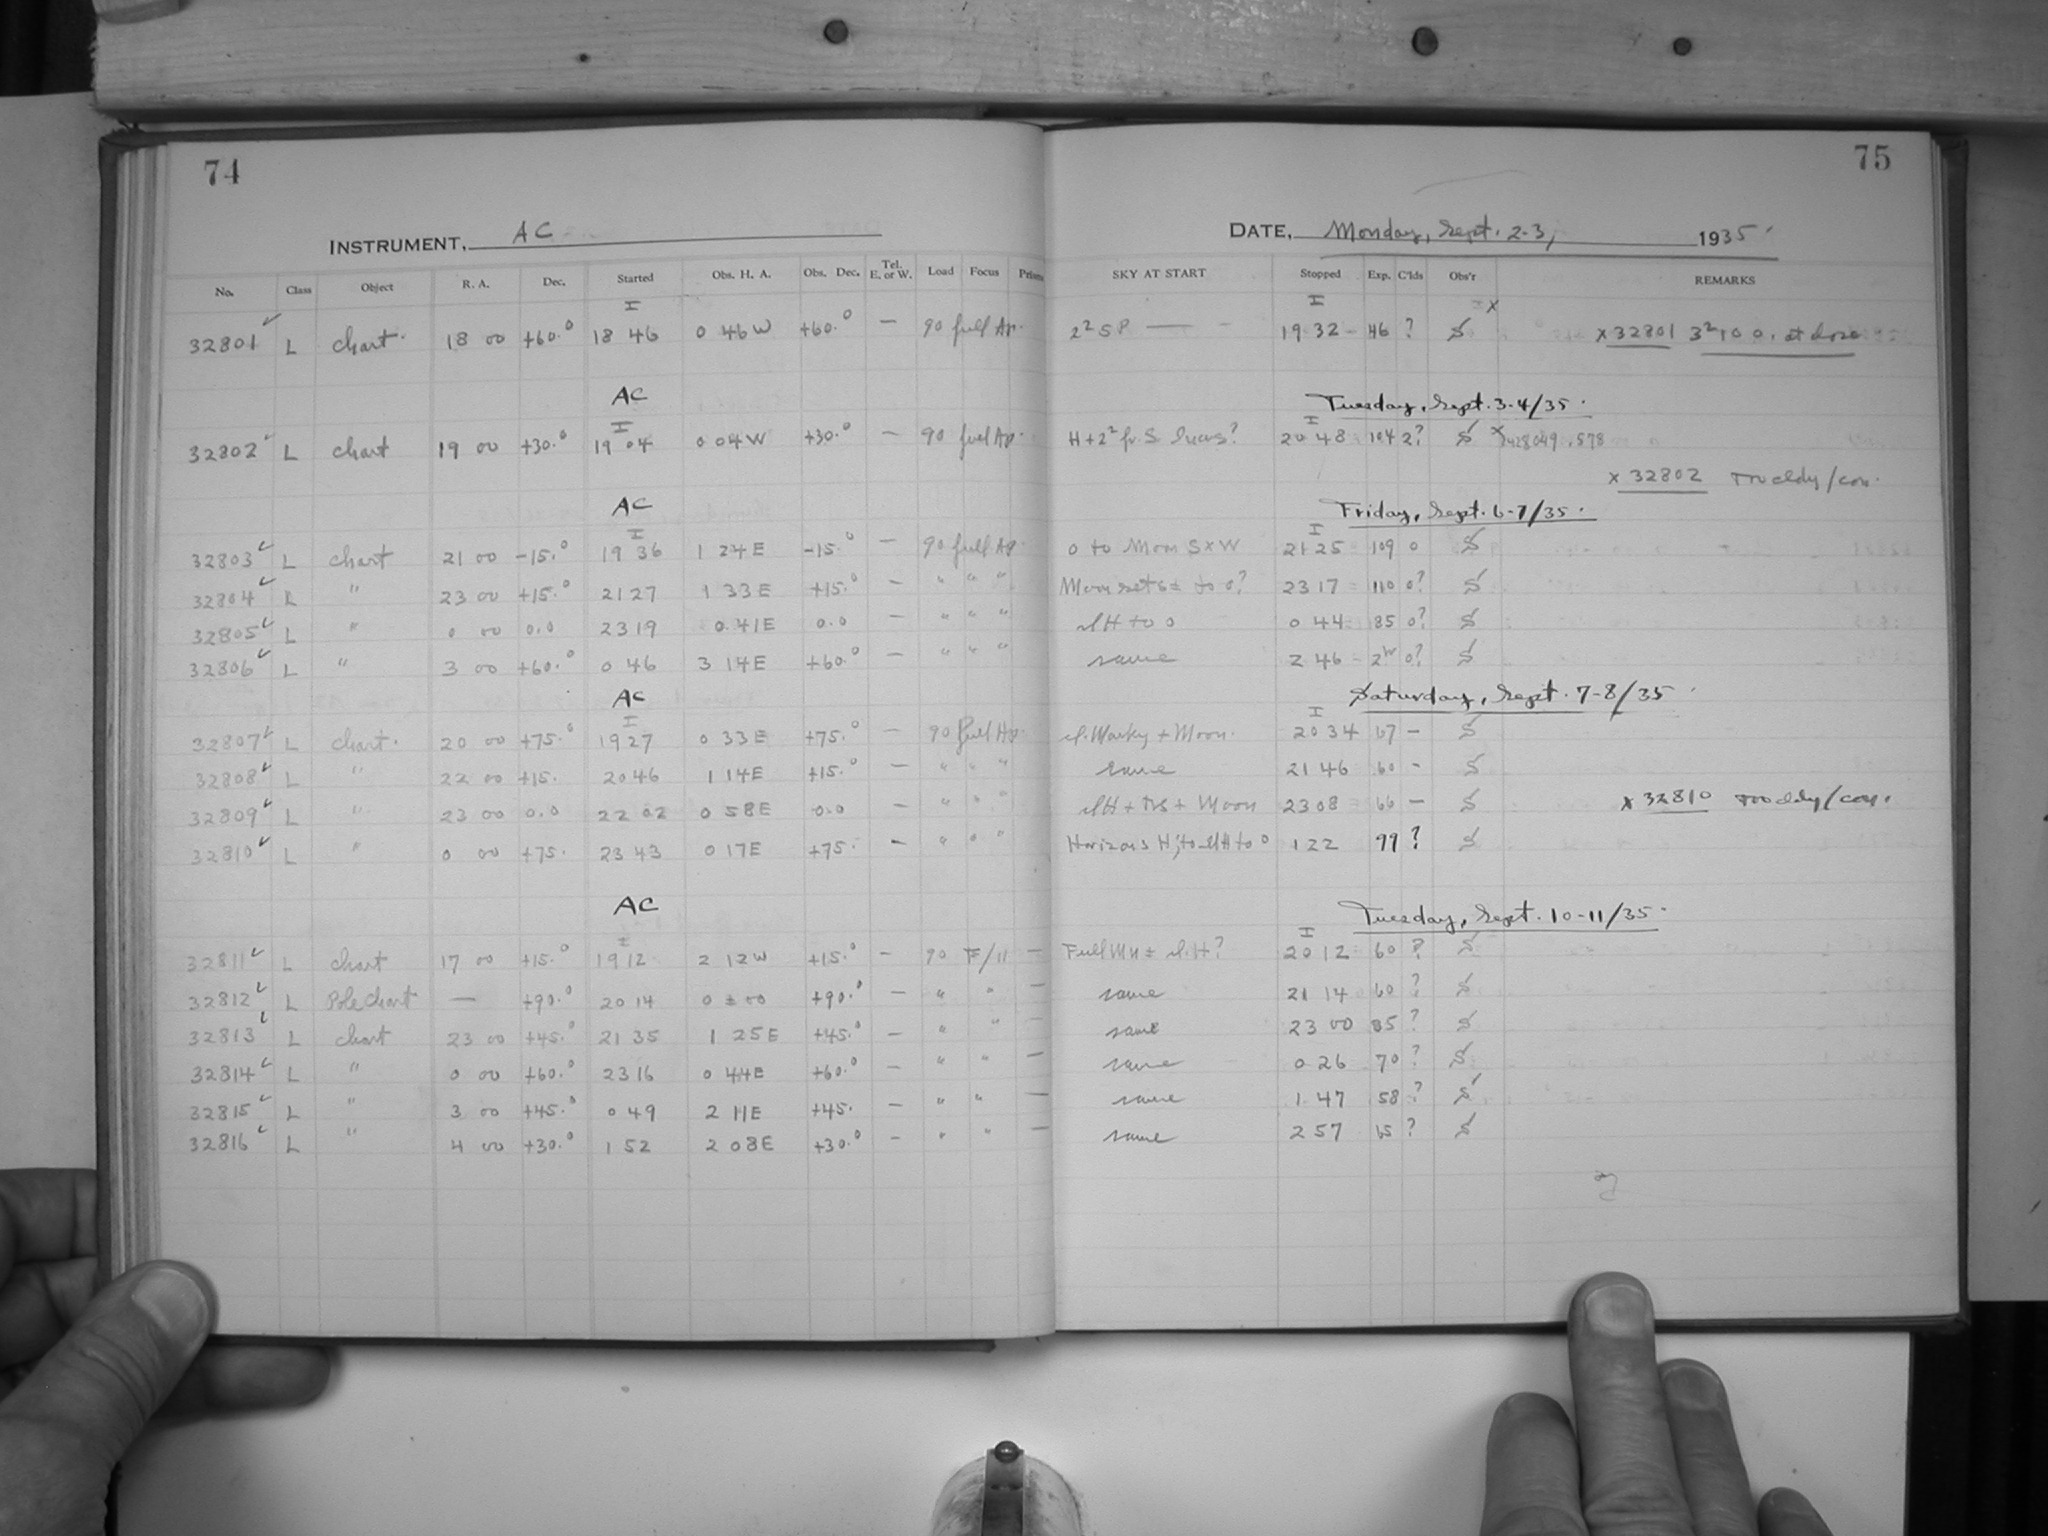 74
75
INSTRUMENT, AC
DATE, Monday, Sept. 2-3, 1935.
No. Class Object R. A. Dec. Started Obs. H. A. Obs. Dec. Tel. E. or W. Load Focus Prism SKY AT START Stopped Exp. C'lds Obs'r REMARKS
I I
32801 L chart. 18 00 +60.° 18 46 0 46 W +60.° — 90 full Ap. 2² S P — 19 32 46 ? S x x 32801 3² to 0. at close
AC Tuesday, Sept. 3-4/35.
I I
32802 L chart 19 00 +30.° 19 04 0 04 W +30.° — 90 full Ap. H+2² fr. S 20 48 104 2? S x 2428049.578
x 32802
AC Friday, Sept. 6-7/35.
I I
32803 L chart 21 00 -15.° 19 36 1 24 E -15.° — 90 full Ap 0 to Moon S x W 21 25 109 0 S
32804 L " 23 00 +15.° 21 27 1 33 E +15.° — " " " Moon sets ± to 0? 23 17 110 0? S
32805 L " 0 00 0.0 23 19 0 41 E 0.0 — " " " to 0 0 44 85 0? S
32806 L " 3 00 +60.° 0 46 3 14 E +60.° — " " " same 2 46 2hr 0? S
AC Saturday, Sept. 7-8/35
I I
32807 L chart. 20 00 +75.° 19 27 0 33 E +75.° — 90 full Ap + Moon. 20 34 67 — S
32808 L " 22 00 +15. 20 46 1 14 E +15.° — " " " same 21 46 60 - S
32809 L " 23 00 0.0 22 02 0 58 E 0.0 — " " " + Moon 23 08 66 — S x 32810
32810 L " 0 00 +75. 23 43 0 17 E +75. — " " " Horizons H; to 0 1 22 99 ? S
AC Tuesday, Sept. 10-11/35.
I I
32811 L chart 17 00 +15.° 19 12 2 12 W +15.° — 90 F/11 — Full Mn ± 20 12 60 ? S
32812 L Pole Chart — +90.° 20 14 0 ± 00 +90.° — " " — same 21 14 60 ? S
32813 L chart 23 00 +45.° 21 35 1 25 E +45.° — " " — same 23 00 85 ? S
32814 L " 0 00 +60.° 23 16 0 44 E +60.° — " " — same 0 26 70 ? S
32815 L " 3 00 +45.° 0 49 2 11 E +45. — " " — same 1 47 58 ? S
32816 L " 4 00 +30.° 1 52 2 08 E +30.° — " " — same 2 57 65 ? S